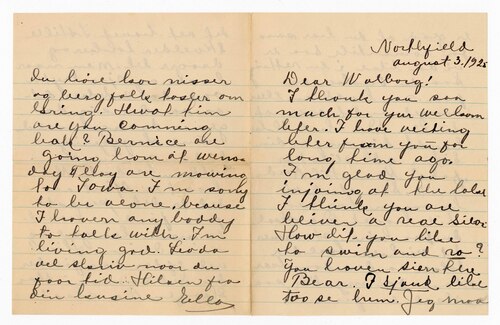 Northfield
august 3. 192
Dear Walborg!
I thank you soo
much for yur wellcom
leter. I have veiting
leter from you for
long time ago.
I'm glad you
injoing at the lake
I think you are
a real
How dit you like
to swim and ro?
You haven sien the
Bear. I like
too se hem. Jeg maa
du höre hor nisser
og bergfolk tasler om
kring. Hwat tim
are you comming
bak? Bernice are
going hom at wens-
day they are mowing
to Iowa. I'm sorry
to be alone, becaus
I haven any boddy
to talk with. I'm
living god.
vel skriv naar du
faar tid. Hilsen fra
din kusine Ella